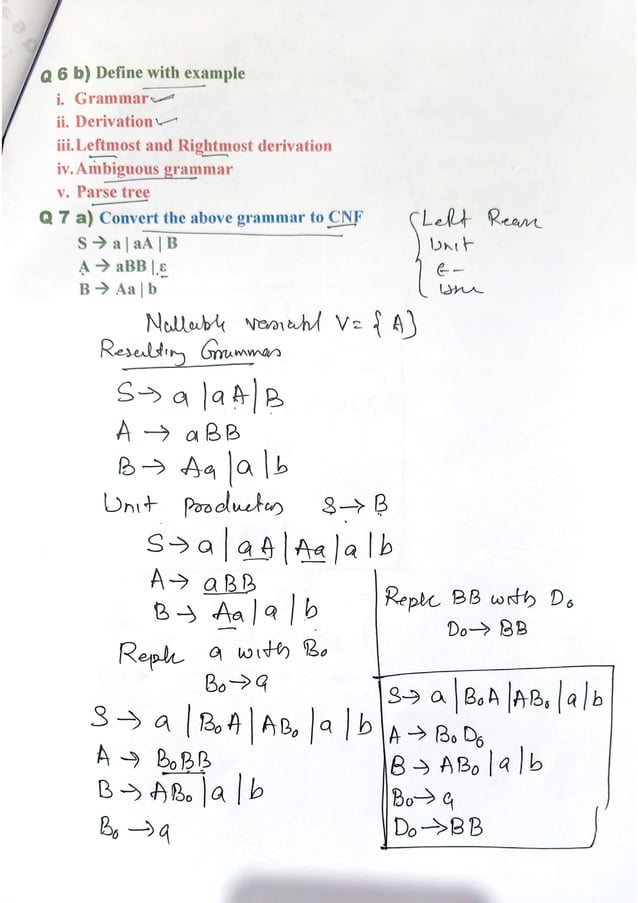 Q 6 b) Define with example
i. Grammar
ii. Derivation
iii. Leftmost and Rightmost derivation
iv. Ambiguous grammar
v. Parse tree
Q 7 a) Convert the above grammar to CNF
S → a | aA | B
A → aBB | ε
B → Aa | b
Left
Unit
ε-
Nullable V = { A }
Resulting Grammar
S → a | aA | B
A → aBB
B → Aa | a | b
Unit S → B
S → a | aA | Aa | a | b
A → aBB
B → Aa | a | b
a with B₀
B₀ → a
S → a | B₀A | AB₀ | a | b
A → B₀BB
B → AB₀ | a | b
B₀ → a
BB with D₀
D₀ → BB
S → a | B₀A | AB₀ | a | b
A → B₀D₀
B → AB₀ | a | b
B₀ → a
D₀ → BB